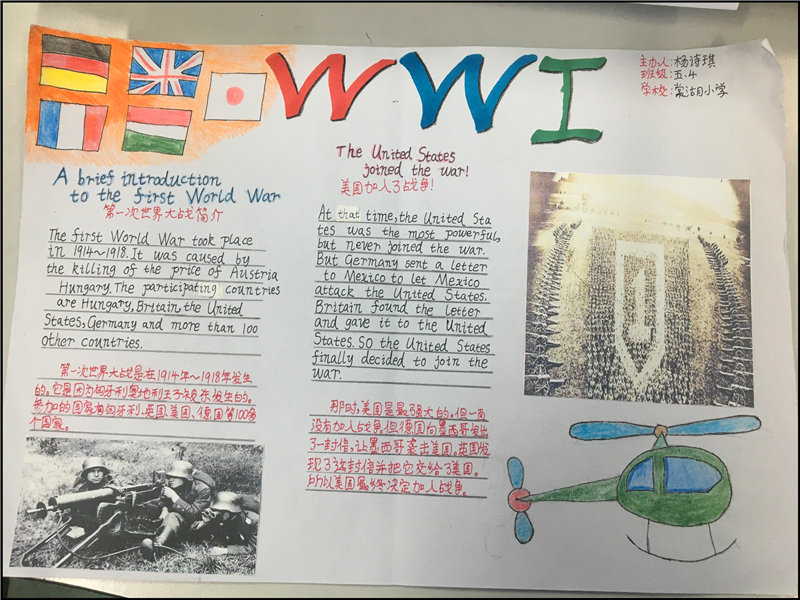 WWI
主办人:杨诗琪
班级:五.4
学校:棠湖小学
A brief introduction
to the first World War
第一次世界大战简介
The first World War took place
in 1914~1918. It was caused by
the killing of the price of Austria
Hungary. The participating countries
are Hungary, Britain, the United
States, Germany and more than 100
other countries.
第一次世界大战是在1914年~1918年发生
的。它是因为匈牙利奥地利王子被杀发生的。
参加的国家有匈牙利、英国、美国、德国等100多
个国家。
The United States
joined the war!
美国加入了战争!
At that time, the United Sta
tes was the most powerful,
but never joined the war.
But Germany sent a letter
to Mexico to let Mexico
attack the United States.
Britain found the letter
and gave it to the United
States. So the United States
finally decided to join the
war.
那时,美国是最强大的,但一直
没有加入战争。但德国向墨西哥发出
了一封信,让墨西哥袭击美国。英国发
现了这封信并把它交给了美国。
所以美国最终决定加入战争。